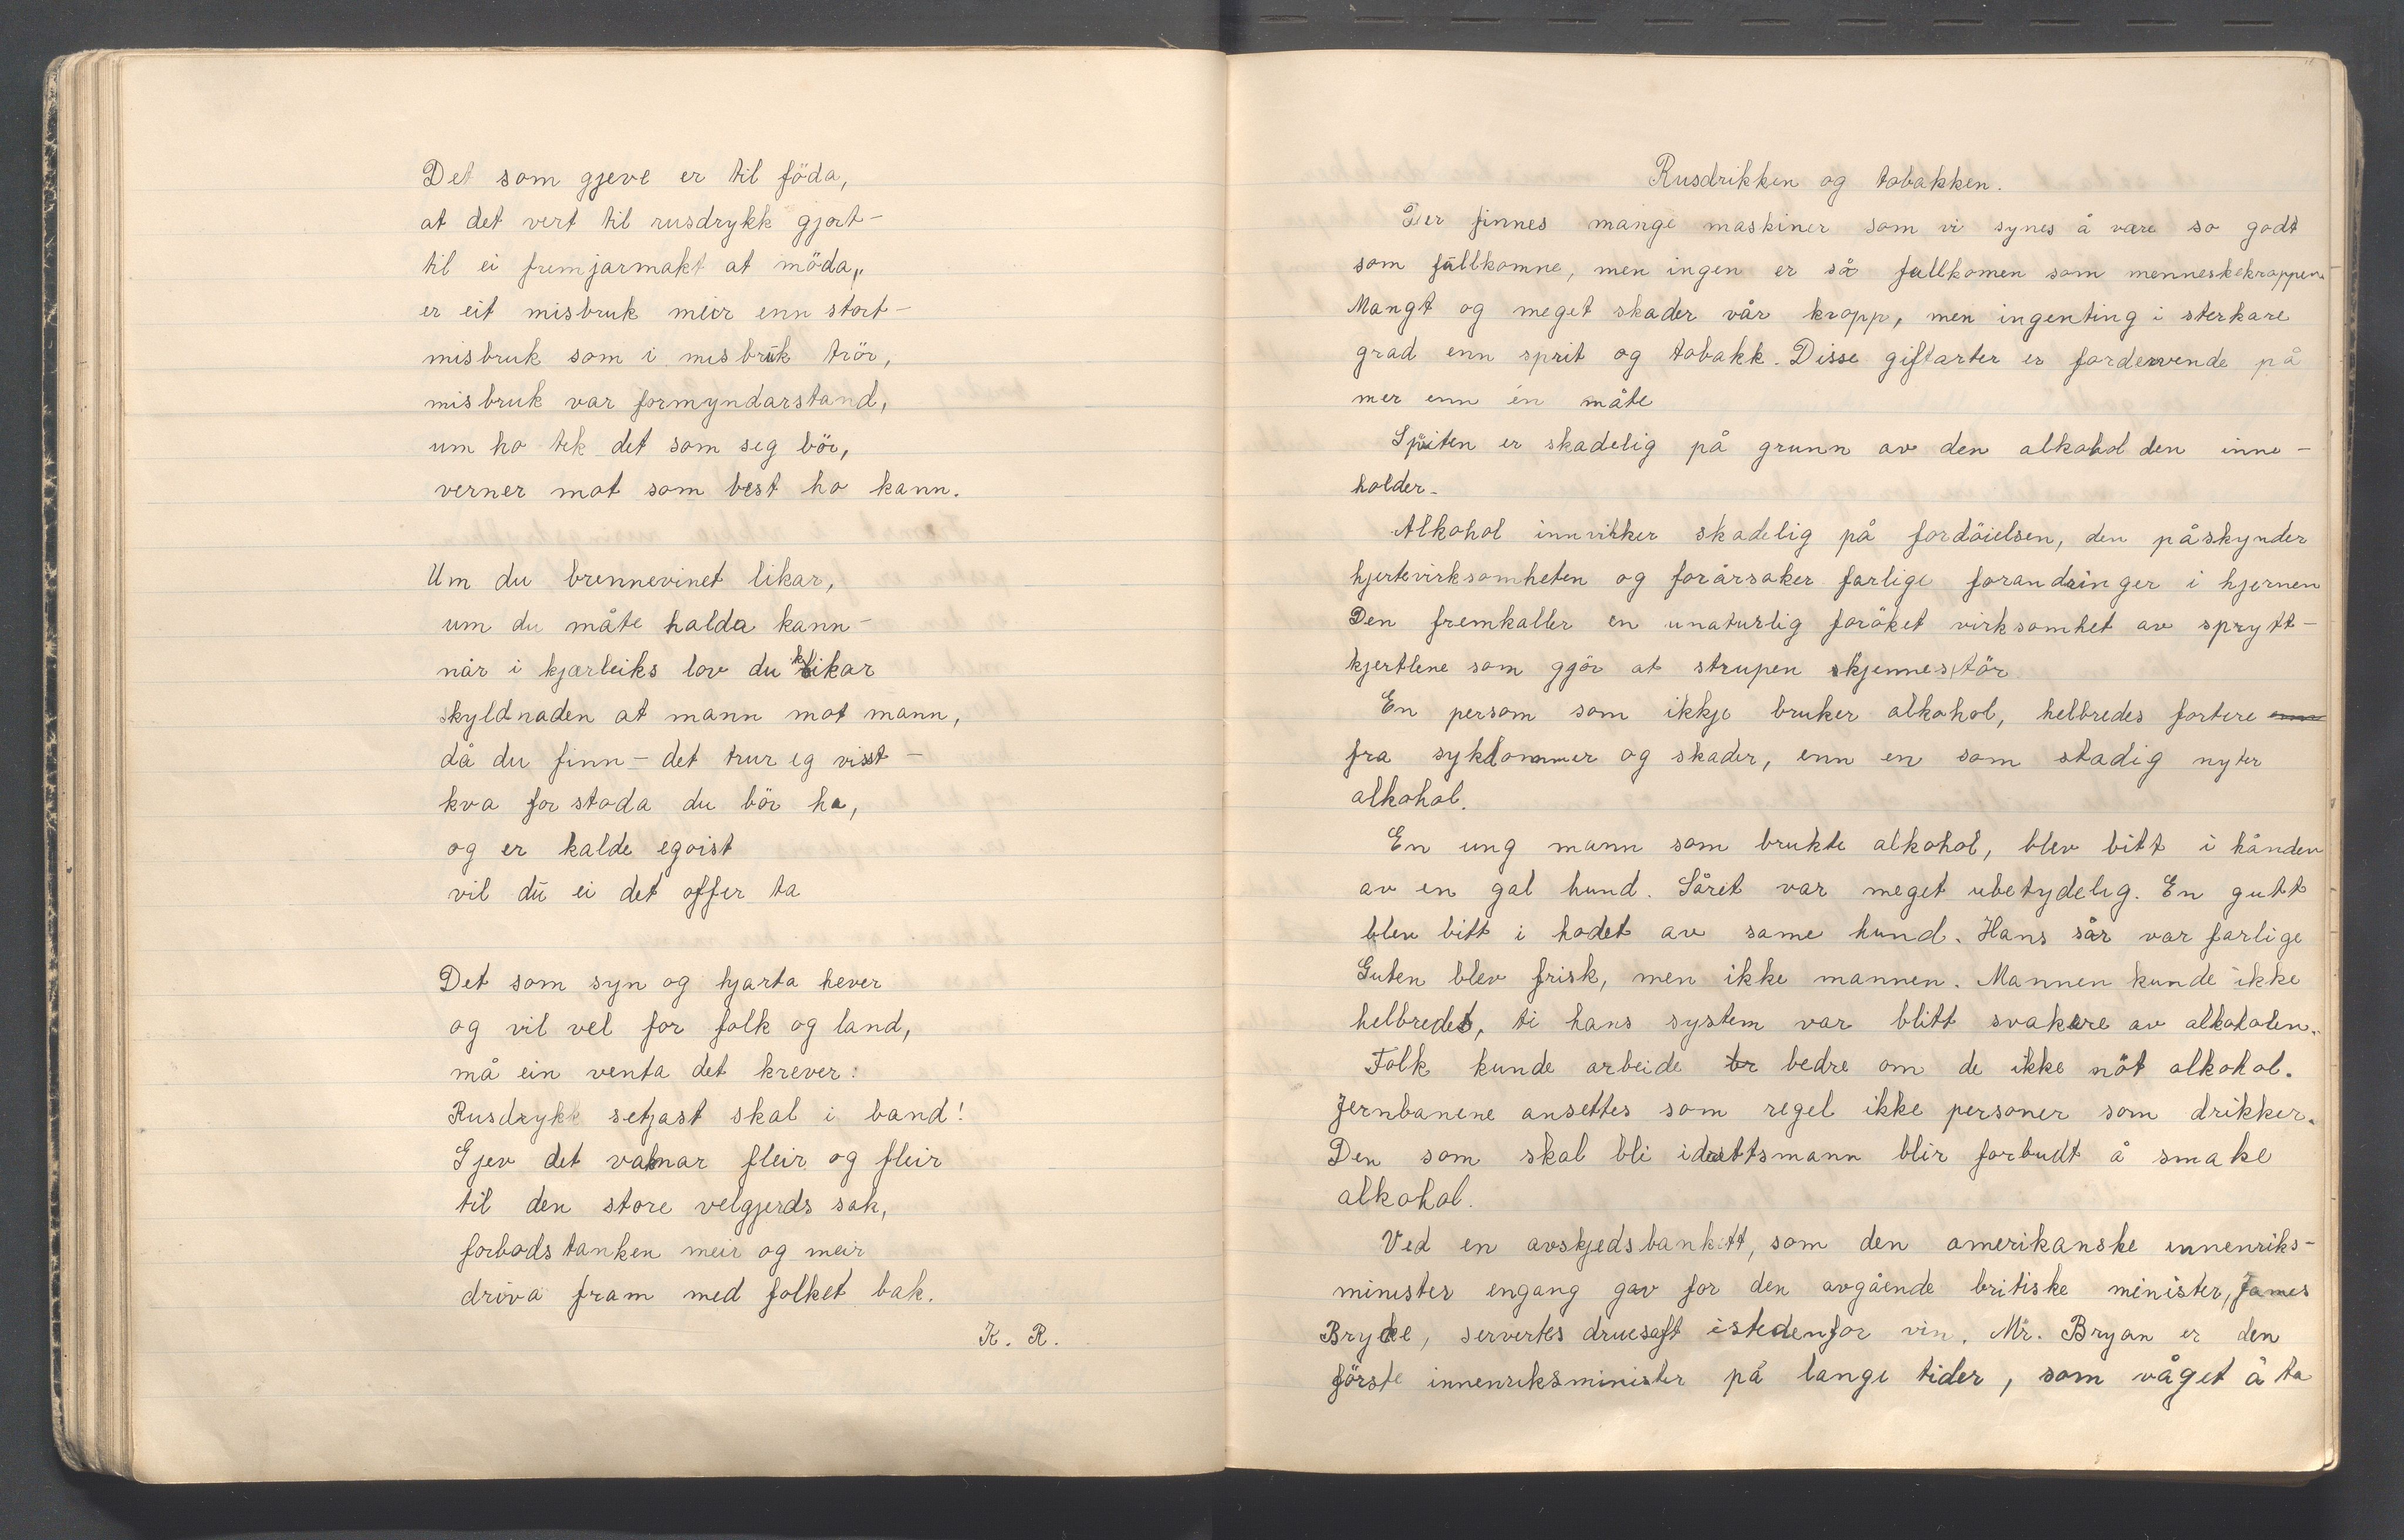 Det som gjeve er til föda,
at det vert til rusdrykk gjort –
til ei fremjarmakt at möda,
er eit misbruk meir enn stort –
misbruk som i misbruk trör,
misbruk var formyndarstand,
um ho tek det som seg bör,
verner mot som best ho kann.
Um du brennevinet likar,
um du måte halda kann –
når i kjærleiks lov du kikar
skyldnaden at mann mot mann,
då du finn – det trur eg visst –
kva for stoda du bör ha,
og er kalde egoist
vil du ei det offer ta
Det som syn og hjarta hever
og vil vel for folk og land,
må ein venta det krever:
Rusdrykk setjast skal i band!
Gjev det vaknar fleir og fleir
til den store velgjerds sak,
forbodstanken meir og meir
driva fram med folket bak.
K. R.
Rusdrikken og tobakken.
Der finnes mange maskiner som vi synes å være so godt
som fullkomne, men ingen er så fullkomen som menneskekroppen.
Mangt og meget skader vår kropp, men ingenting i sterkare
grad enn sprit og tobakk. Disse giftarter er fordervende på
mer enn én måte
Spriten er skadelig på grunn av den alkohol den inne-
holder.
Alkohol innvirker skadelig på fordöielsen, den påskynder
hjertevirksomheten og forårsaker farlige forandringer i hjernen
Den fremkaller en unaturlig foröket virksomhet av sprytt-
kjertlene som gjör at strupen skjennes tör
En person som ikkje bruker alkohol, helbredes fortere enn
fra sykdommer og skader, enn en som stadig nyter
alkohol.
En ung mann som brukte alkohol, blev bitt i hånden
av en gal hund. Såret var meget ubetydelig. En gutt
blev bitt i hodet av same hund. Hans sår var farlige
Guten blev frisk, men ikke mannen. Mannen kunde ikke
helbredes, ti hans system var blitt svakere av alkoholen.
Folk kunde arbeide br bedre om de ikke nöt alkohol.
Jernbanene ansettes som regel ikke personer som drikker.
Den som skal bli idrettsmann blir forbudt å smake
alkohol.
Ved en avskjedsbankett, som den amerikanske innenriks-
minister engang gav for den avgående britiske minister, James
Bryce, servertes druesaft istedenfor vin. Mr. Bryan er den
förste innenriksminister på lange tider, som våget å ta